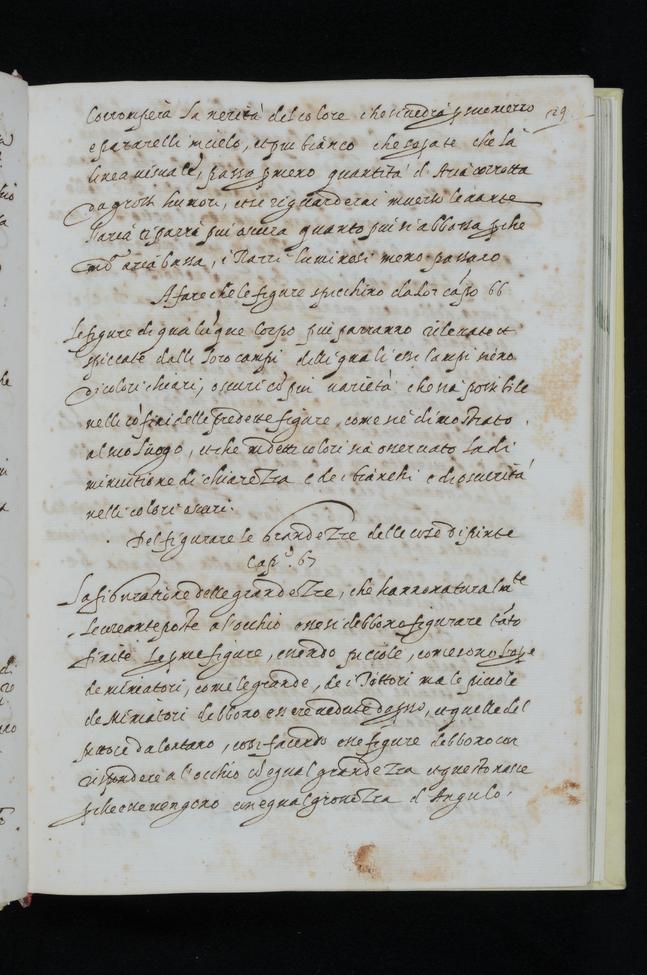 129
Corromperà la verità del colore che si vedrà p suo mezzo
e parerelli in cielo, et piu bianco che sopate che la
linea visuale, passa p meno quantità d'Aria corrotta
da grossi humori, et se riguarderai inverso levante
l'aria ti parrà piu oscura quanto piu s'abbassa pche
in dª aria bassa, i Razzi luminosi meno passano
A fare che le figure spicchino da lor cãpo 66
Le figure di qualũque corpo piu parranno rilevate et
spiccate dalli loro campi delli quali essi campi sieno
di colori chiari, o scuri cõ piu varietà che sia possibile
nelli cõfini delle predette figure, come s'è dimostrato
al suo luogo, et che in detti colori sia osservato la di
minutione di chiarezza e de i bianchi e di oscurità
nelli colori oscuri.
Del figurare le grandezze delle cose dipinte
Cap.º 67
La figuratione delle grandezze, che hanno naturalmte
le cose anteposte a l'occhio e se si debbono figurare tãto
finite le pme figure, essendo piccole, come sono l'op.e
de miniatori, come le grande, de i Pittori ma le piccole
de Miniatori debbono essere vedute dapso, et quelle del
Pittore da lontano, cosi facendo esse figure debbono cor
rispondere a l'occhio cõ egual grandezza et questo nasce
pche che vengono cun egual grossezza d'Angulo.